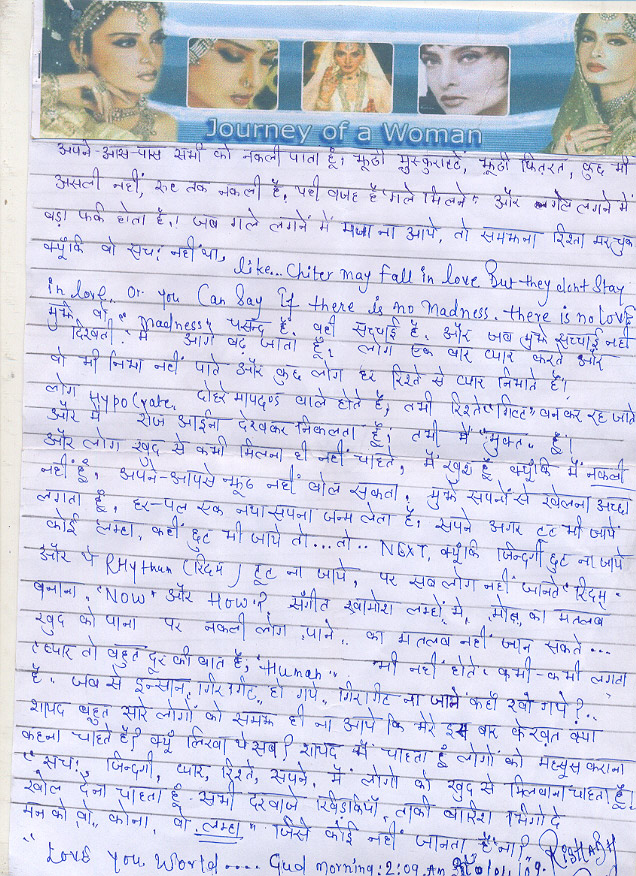 Journey of a Woman
अपने-आस-पास सभी को नकली पाता हूँ। झूठी मुस्कुराहटें, झूठी फितरत, कुछ भी
असली नहीं, रूह तक नकली है, यही वजह है "गले मिलने" और गले लगने में
बड़ा फर्क होता है.! जब गले लगने में मजा ना आये, तो समझना रिश्ता मर चुका
क्यूँकि वो सच! नहीं था, like... Chiter may fall in love But they dont stay
in love.. Or you Can Say If there is no Madness. there is no LOVE
मुझे वो "Madness" पसन्द है. वही सच्चाई है. और जब मुझे सच्चाई नहीं
दिखती! मैं आगे बढ़ जाता हूँ। लोग एक बार प्यार करते और
वो भी निभा नहीं पाते और कुछ लोग हर रिश्ते से प्यार निभाते हैं!
लोग Hypocrate. दोहरे मापदण्ड वाले होते है, तभी रिश्ते "गिल्ट" बन कर रह जाते
और मैं रोज आईना देखकर निकलता हूँ; तभी मैं "मुक्त" हूँ।
और लोग खुद से कभी मिलना ही नहीं चाहते, मैं खुश हूँ क्यूँकि मैं नकली
नहीं हूँ, अपने-आपसे झूठ नहीं बोल सकता. मुझे सपनों से खेलना अच्छा
लगता है. हर-पल एक नया सपना जन्म लेता है. सपने अगर टूट भी जायें
कोई लम्हा, कहीं छूट भी जाये तो...तो.. NEXT, क्यूँकि जिन्दगी छूट ना जाये
और ये RHythum (रिदम) टूट ना जाये, पर सब लोग नहीं जानते "रिदम"
बनाना. "NOW" और HOW? संगीत खामोश लम्हों में, का मतलब
खुद को पाना पर नकली लोग पाने.. का मतलब नहीं जान सकते...
प्यार तो बहुत दूर की बात है, "Human.. भी नहीं होते कभी-कभी लगता
है. जब से इन्सान, गिरगिट.. हो गये.. गिरगिट ना जाने कहाँ खो गये?..
शायद बहुत सारे लोगों को समझ ही ना आये कि मेरे इस बार के खत क्या
कहना चाहते हैं? क्यूँ लिखा ये सब? शायद मैं चाहता हूँ लोगों को महसूस कराना
"सच! जिन्दगी, प्यार, रिश्ते, सपने. मैं लोगों को खुद से मिलवाना चाहता हूँ।
खोल देना चाहता हूँ. सभी दरवाजे खिड़कियाँ, ताकी बारिश भिगो दे
मन को, वो.. कोना, वो लम्हा" जिसे कोई नहीं जानता है ना? RISHABH
"Love you World.... Gud morning: 2:09. Am